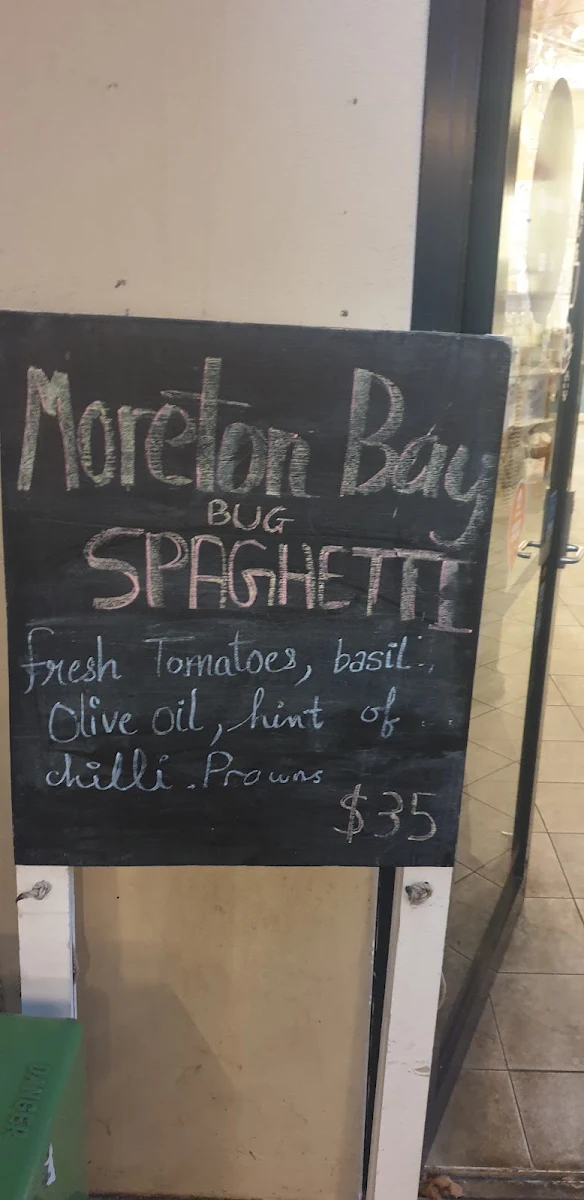 Moreton Bay
BUG
SPAGHETTI
fresh Tomatoes, basil.,
Olive oil, hint of
chilli. Prawns
$35
DANGER